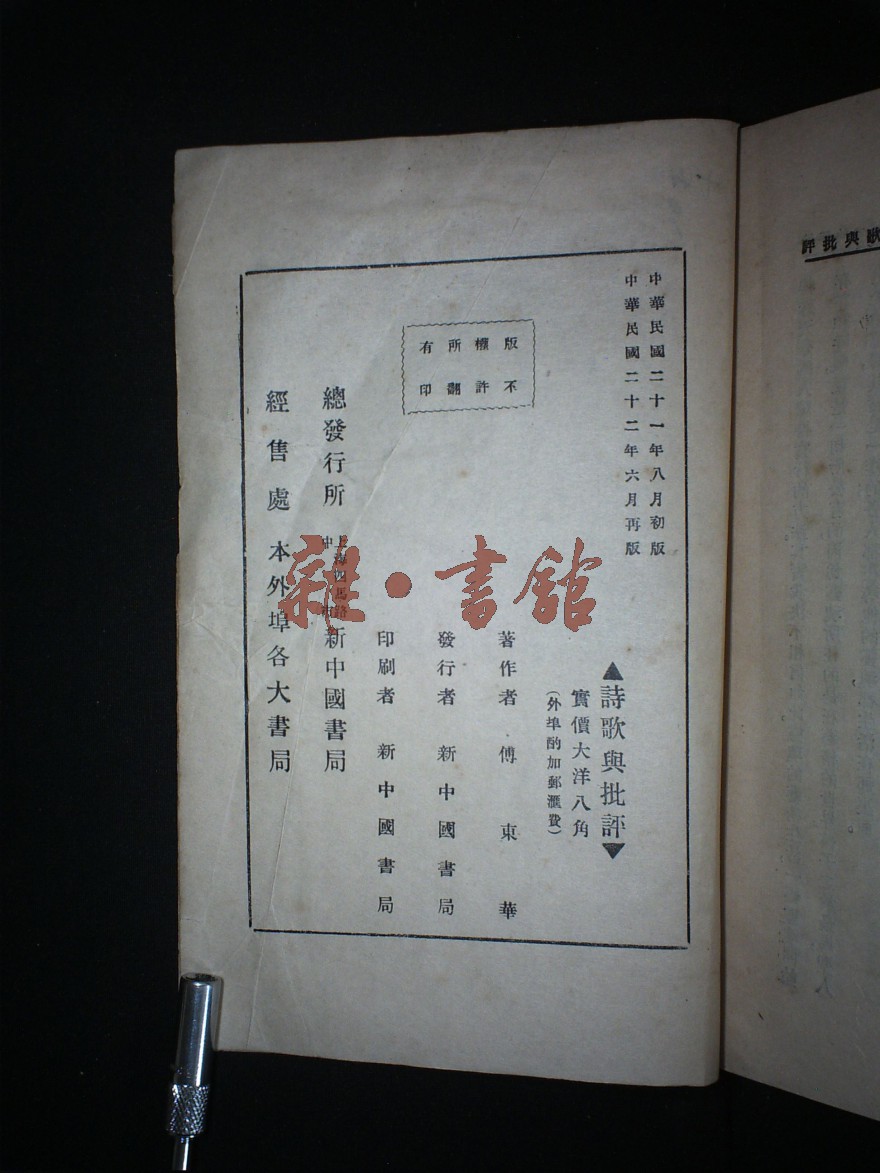 中華民國二十一年八月初版
中華民國二十二年六月再版
▲詩歌與批評▼
實價大洋八角
（外埠酌加郵滙費）
著作者 傅東華
發行者 新中國書局
印刷者 新中國書局
版權所有
不許翻印
總發行所 上海四馬路中市 新中國書局
經售處 本外埠各大書局
歌與批評
雜·書館